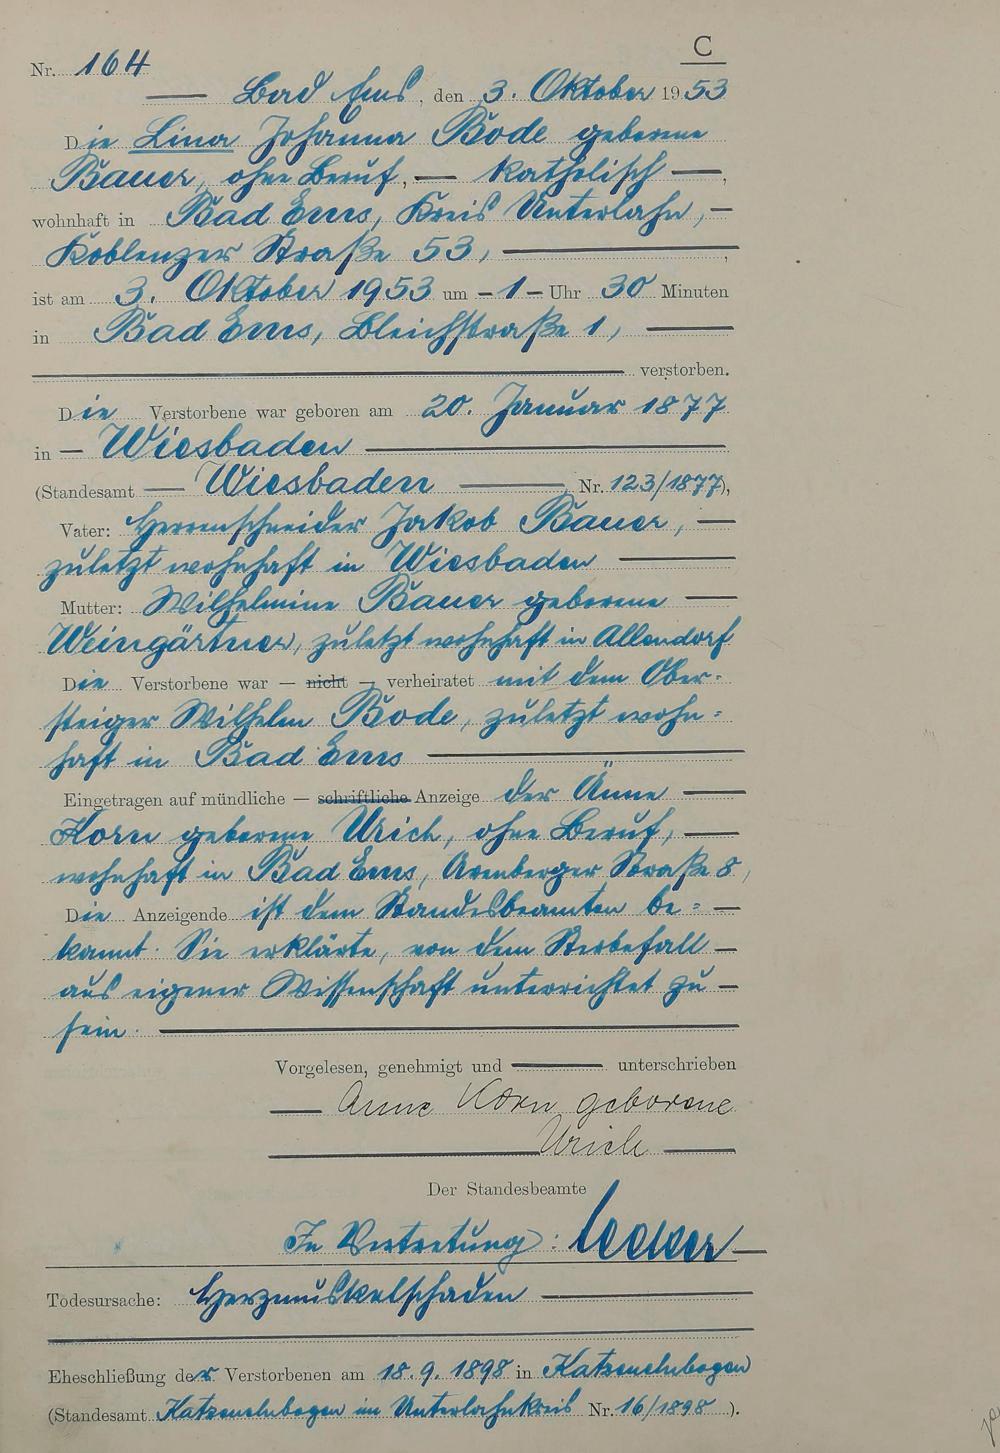 C
Nr. 164
— Bad Ems, den 3. Oktober 1953
Die Lina Johanna Bode geborene
Bauer, ohne Beruf, — katholisch —,
wohnhaft in Bad Ems, Kreis Unterlahn, —
Koblenzer Straße 53, —,
ist am 3. Oktober 1953 um - 1 - Uhr 30 Minuten
in Bad Ems, Bleichstraße 1, —
— verstorben.
Die Verstorbene war geboren am 20. Januar 1877
in — Wiesbaden —
(Standesamt — Wiesbaden — Nr. 123/1877),
Vater: Herrenschneider Jakob Bauer, —
zuletzt wohnhaft in Wiesbaden —
Mutter: Wilhelmine Bauer geborene —
Weingärtner, zuletzt wohnhaft in Allendorf
Die Verstorbene war — nicht — verheiratet mit dem Ober-
steiger Wilhelm Bode, zuletzt wohn-
haft in Bad Ems —
Eingetragen auf mündliche — schriftliche Anzeige der Änne —
Korn geborene Urich, ohne Beruf, —
wohnhaft in Bad Ems, Arenberger Straße 8,
Die Anzeigende ist dem Standesbeamten be- —
kannt. Sie erklärte, von dem Sterbefall —
aus eigener Wissenschaft unterrichtet zu —
sein. —
Vorgelesen, genehmigt und — unterschrieben
— Anne Korn geborene
Urich —
Der Standesbeamte
In Vertretung:
Todesursache: Herzmuskelschaden —
Eheschließung der Verstorbenen am 18.9.1898 in Katzenelnbogen
(Standesamt Katzenelnbogen im Unterlahnkreis Nr. 16/1898).